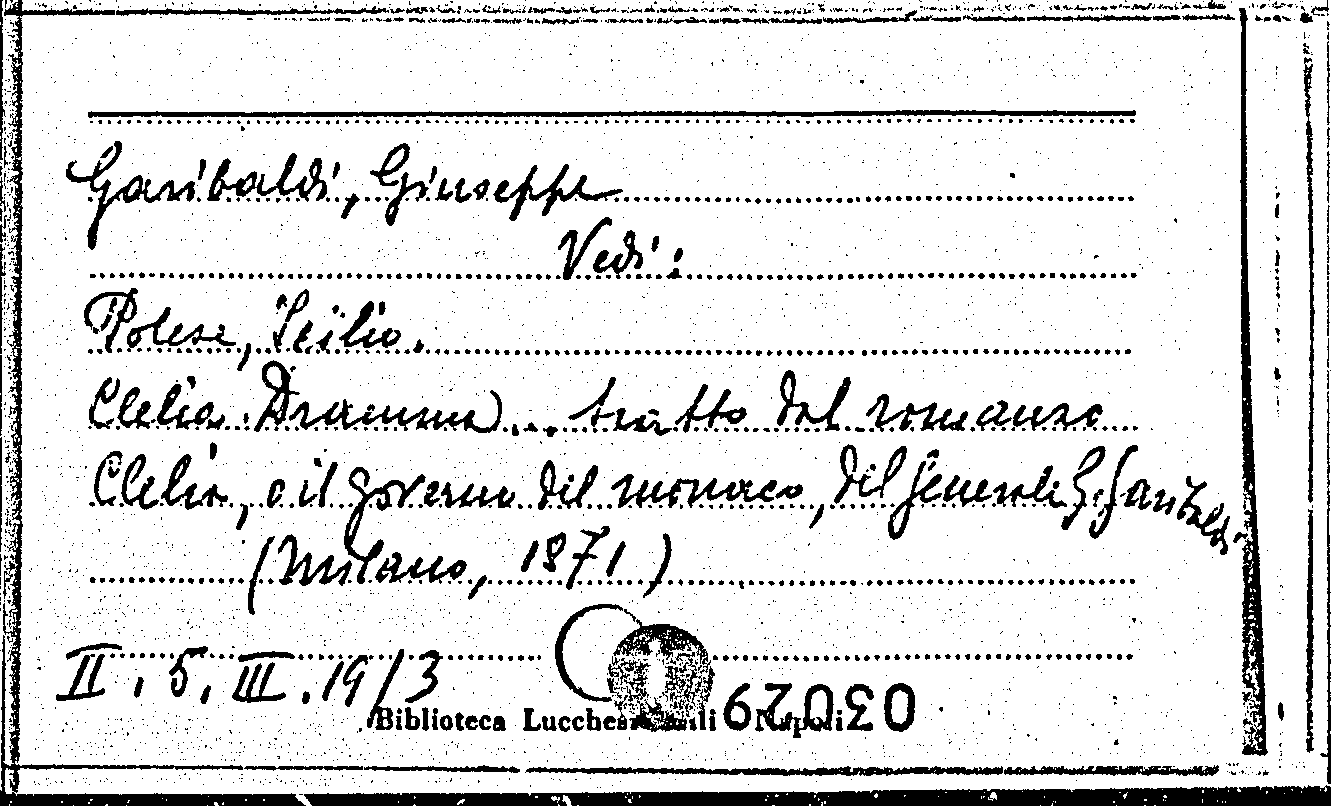 Garibaldi, Giuseppe
Vedi:
Polese, Icilio.
Clelia. Dramma ... tratto dal romanzo
Clelia, o il governo del monaco, del generale G. Garibaldi
(Milano, 1871)
II. 5. III. 19/3
Biblioteca Lucchesi Palli Napoli